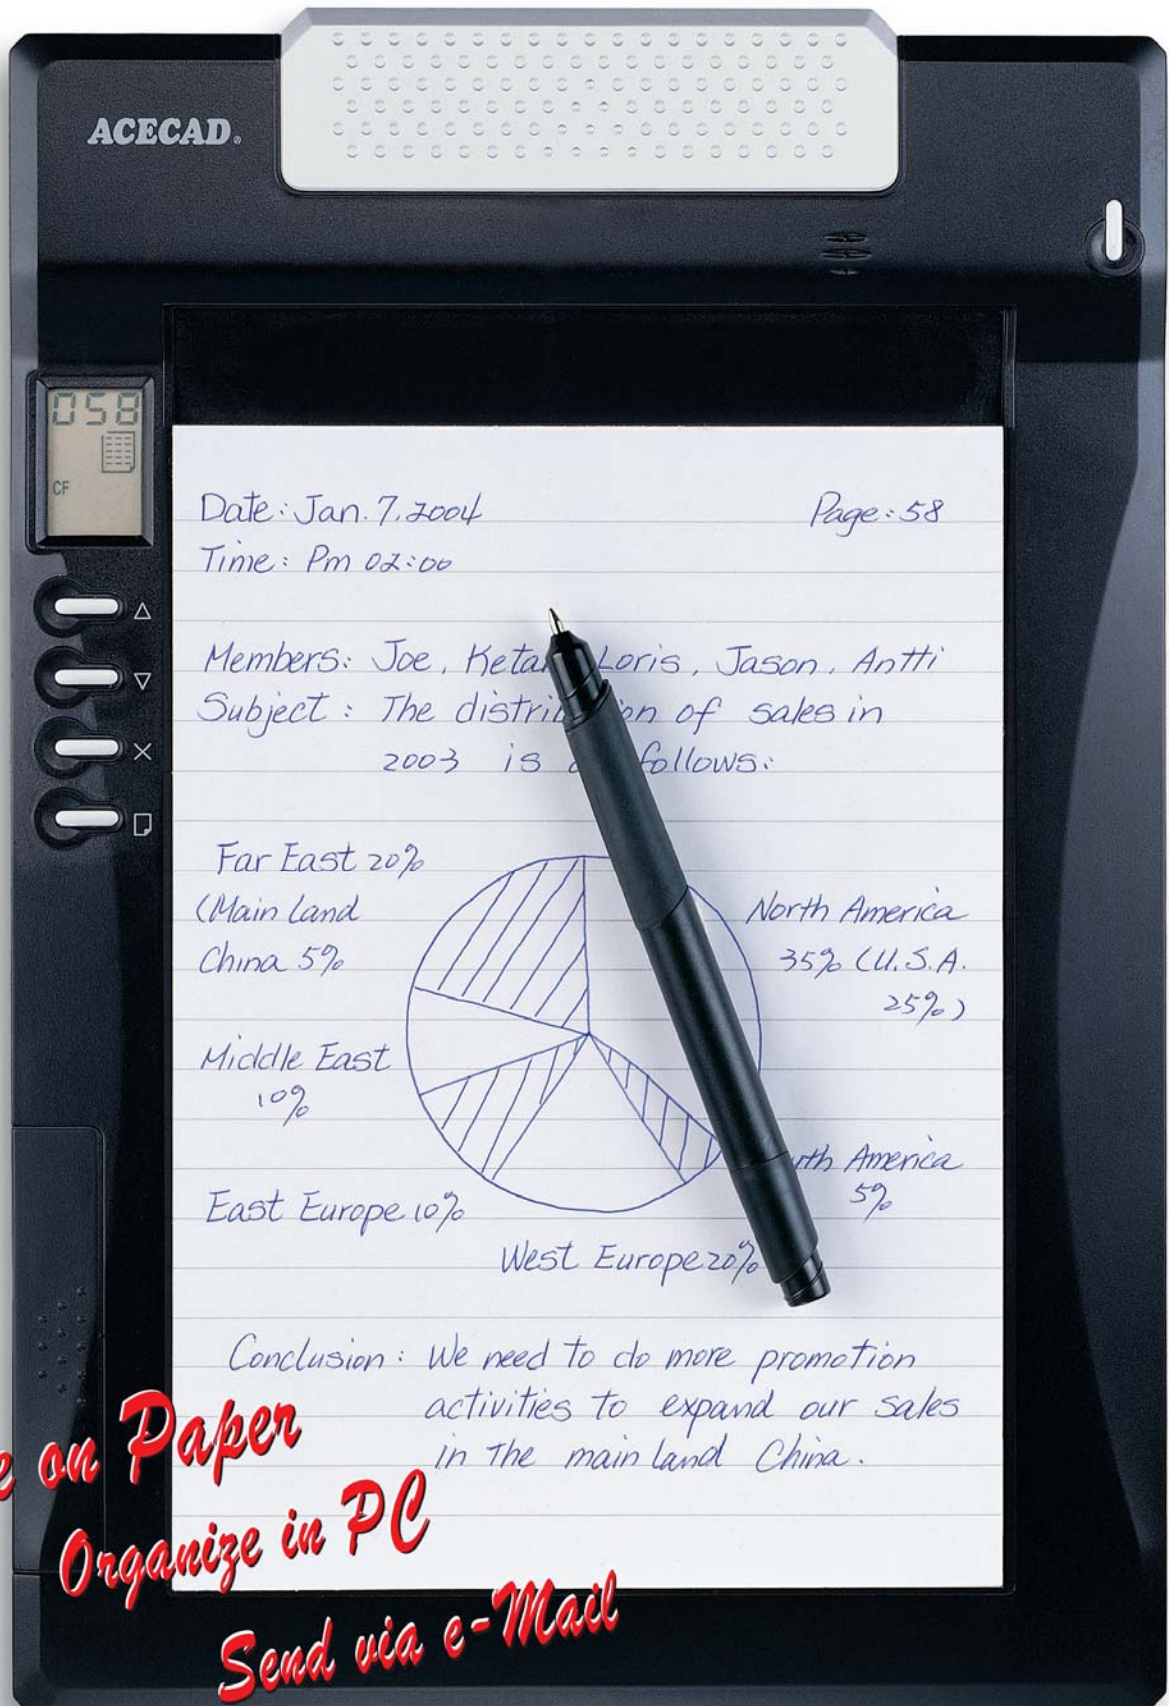 ACECAD®
058
CF
Date: Jan. 7. 2004 Page: 58
Time: Pm 02:00
Members: Joe, Loris, Jason, Antti
Subject: The of sales in
2003 is follows:
Far East 20%
(Main Land
China 5%
North America
35% (U.S.A.
25%)
Middle East
10%
America
5%
East Europe 10%
West Europe 20%
Conclusion: We need to do more promotion
activities to expand our sales
in The main land China.
on Paper
Organize in PC
Send via e-Mail